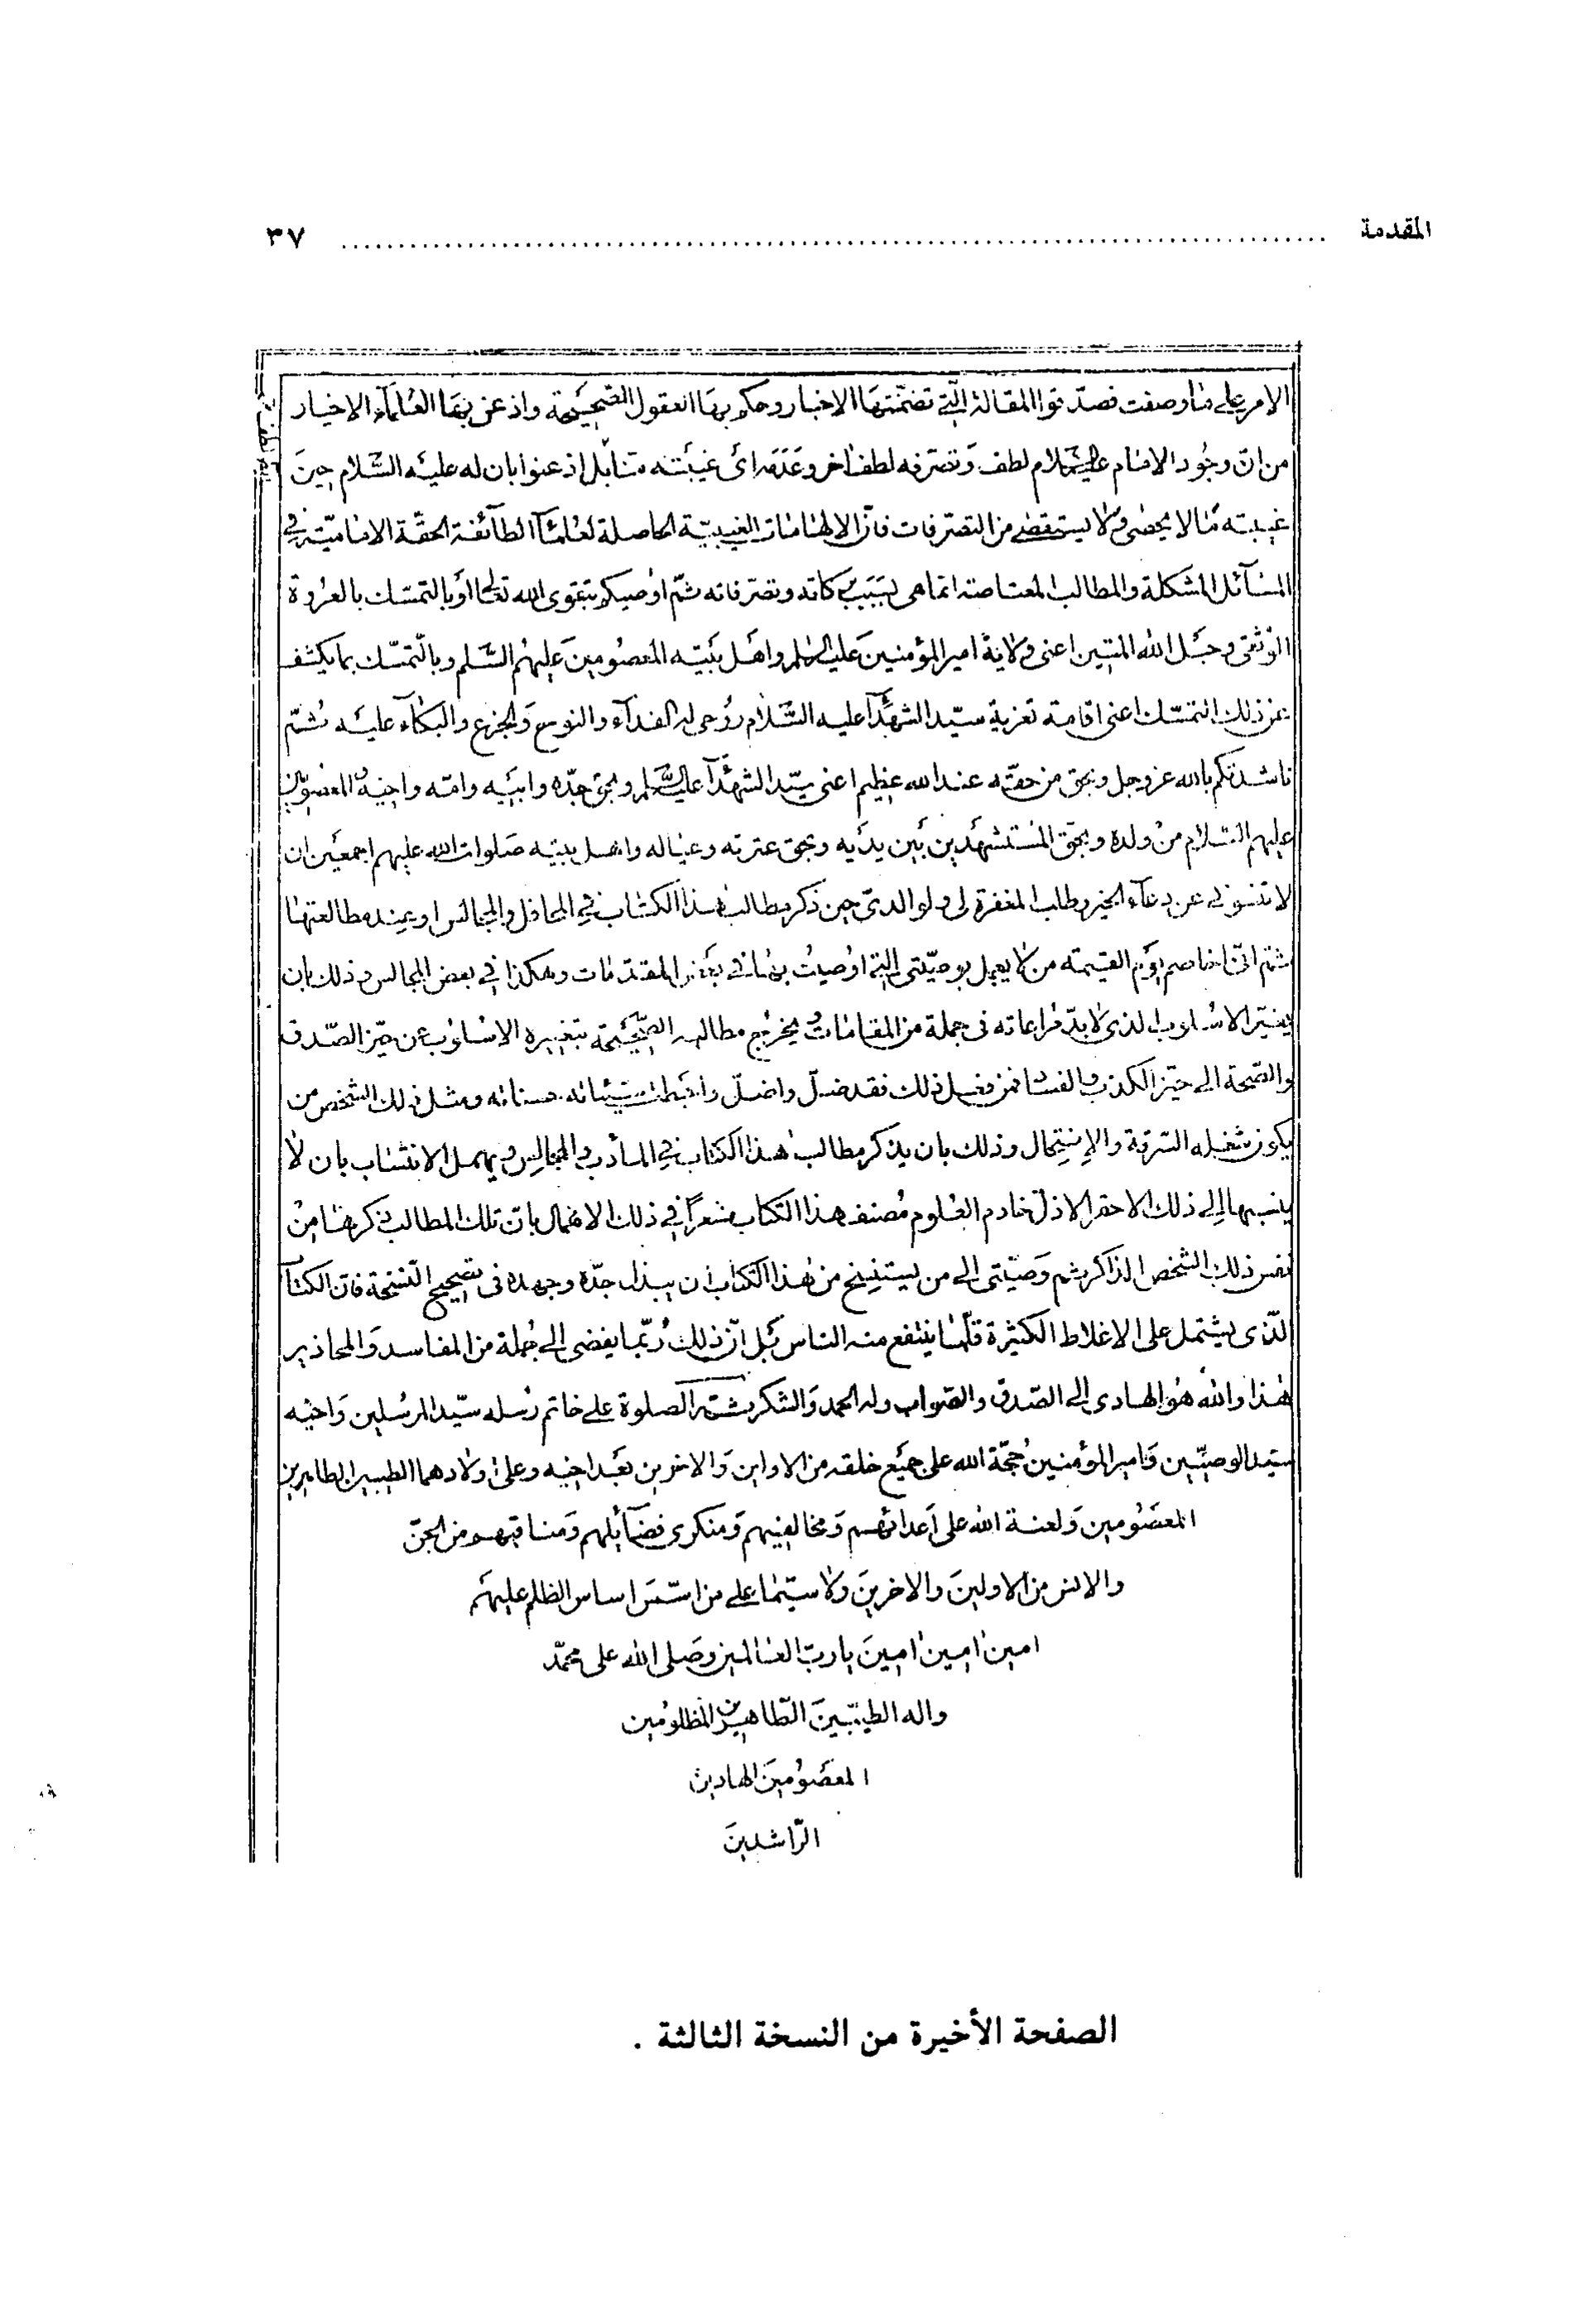 المقدمة ........................................ ٣٧
الامر على ما وصفت فصدّقوا المقالة الّتي تضمّنتها الاخبار وحكم بها العقول الصّحيحة واذعن بها العلمآء الاخيار
من انّ وجود الامام عليه السّلام لطف وَتصرّفه لطف اخر وعَدَمه اى غيبَته منّا بل اذعنوا بان له عليه السّلام حينَ
غيبته ممّا لا يحصى ولا يستقصى من التصرّفات فانّ الالهامات الغيبيّة الحاصلة لعلمائنا الطآئفة الحقّة الاماميّة في
المسآئل المشكلة والمطالب المعتاصة انّما هى بسَبَب بركاته وتصرّفاته ثمّ اوصيكم بتقوى الله تعالى اوّ بالتمسّك بالعروة
الوُثقى وحَبل الله المتين اعنى ولاية امير المؤمنينَ عليه السلام واهَل بَيته المعصُومينَ عليهم السَّلم وبالتّمسّك بما يكشف
عن ذلك التمسّك اعنى اقامة تعزية سيّد الشهدآء عليه السَّلام رُوحى له الفدآء والنوح وَالجزع والبكآء عليه ثمّ
ناشدتكم بالله عز وجل وبحق من حقّه عند الله عظيم اعنى سيّد الشّهدآء عليه السلم وبحق جدّه وابَيه وامّه واخيه والمعصومين
عليهم السّلام من ولده وبحقّ المُستشهَدين بَين يدَيه وبحق عترته وعياله واهل بيته صَلوات الله عليهم اجمعين ان
لا تنسونى عن دعآء الخير وطلب المغفرة لى ولوالدىّ حين ذكر مطالب هذا الكتاب في المحافل والمجالس او عند مطالعتها
ثمّ انّى اخاصم يوَم القيمة من لا يعمل بوصيّتى الّتى اوصيتُ بها فى بعَض المقدّمات وهكذا في بعض المجالس وذلك بان
يغيّر الاُسلوب الذى لا بدّ مراعاته فى جملة من المقامات ويُخرج مطالبه الصّحيَحة بتغييره الاسلوب عن حيّز الصّدق
والصّحة الى حيّز الكذب والفساد فمن فعل ذلك فقد ضلّ واضلّ واحبَطت سيّئاته حسناته ومثل ذلك الشخص من
يكون شغله السّرقة والإنتِحال وذلك بان يذكر مطالب هذا الكتاب في المادب والمجالِس ويهمل الانتساب بان لا
ينسبها الى ذلك الاحقر الاذلّ خادم العُلوم مُصنف هذا الكتاب مشعراً في ذلك الاهمال بانّ تلك المطالب ذكرها مِن
نفس ذلك الشّخص الذاكر ثم وَصيّتى الى من يستنسِخ من هٰذا الكتاب ان يبذل جدّه وجهده فى تصحيح النّسخة فان الكتاب
الّذى يشتمل على الاغلاط الكثيرة قلّما ينتفع منه الناس بَل انّ ذلك رُبّما يفضى الى جُملة من المفاسد وَالمحاذير
هٰذا والله هُو الهادى الى الصّدق والصّواب وله الحمد وَالشكر ثمّ الصلوة على خاتم رُسله سيّد المرسَلين وَاخيه
سيّد الوصيّين وَامير المؤمنين حُجّة الله على جَميع خلقه من الاولين وَالاخرين بعَد اخيه وعلى اولادهما الطيبين الطاهرين
المعصُومين وَلعنة الله على اَعدائهم وَمخالفيهم وَمنكرى فضآئلهم وَمناقبهم من الجنّ
والانس من الاولينَ والاخرينَ ولا سيّما على من اسّسَ اساس الظلم عليهَم
امين امين امينَ يا ربّ العالمين وصَلى الله على محمّد
واله الطيّبينَ الطّاهرين المظلومين
المعصُومينَ الهادين
الرّاشدينَ
الصفحة الأخيرة من النسخة الثالثة .